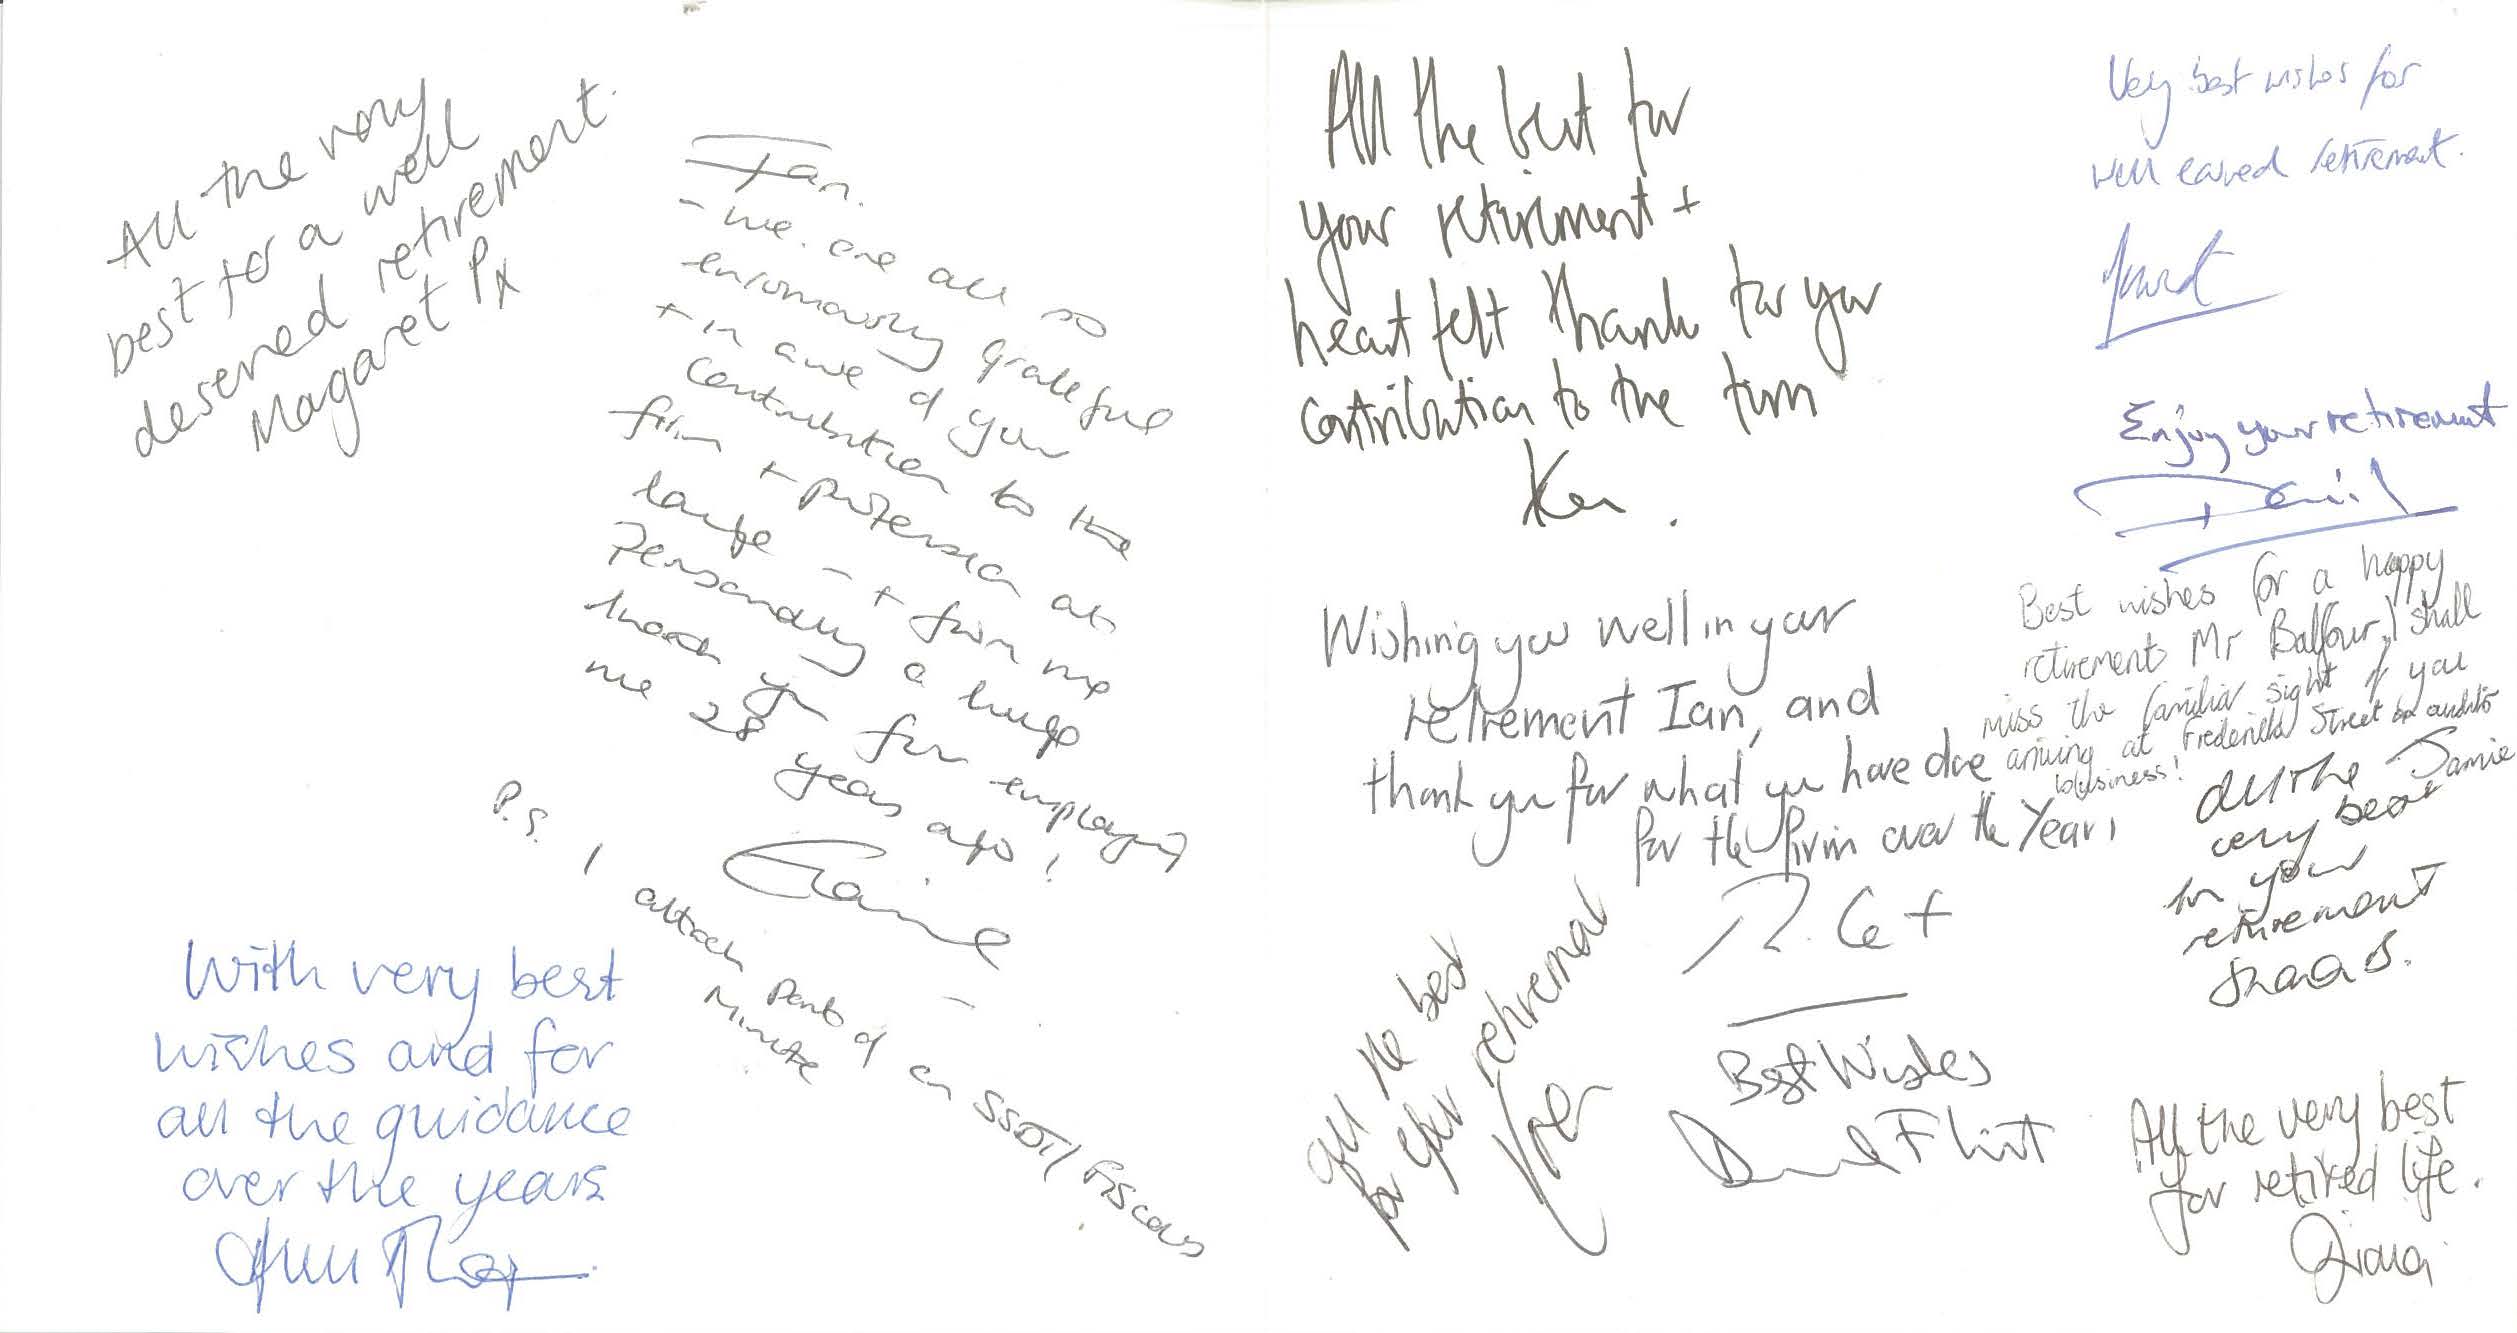 All the very
best for a well
deserved retirement.
Margaret Px
Ian.
- we are all so
enormously grateful
+ in awe of your
contribution to the
firm + profession at
large - + from me
Personally a huge
thank you for employing
me 28 years ago!
Claire
P.S. I attach part of an SSDT/Fiscals
Minute
With very best
wishes and for
all the guidance
over the years
All the best for
your retirement +
heart felt thanks for your
contribution to the firm
Ken.
Wishing you well in your
retirement Ian, and
thank you for what you have done
for the firm over the years
all the best
for your retirement
Best Wishes
Flint
Very best wishes for
well earned retirement.
Enjoy your retirement
David
Best wishes for a happy
retirement Mr Balfour, I shall
miss the familiar sight of you
arriving at Frederick Street on audit
business!
Jamie
All the
very best
in your
retirement
All the very best
for retired life.
Diana